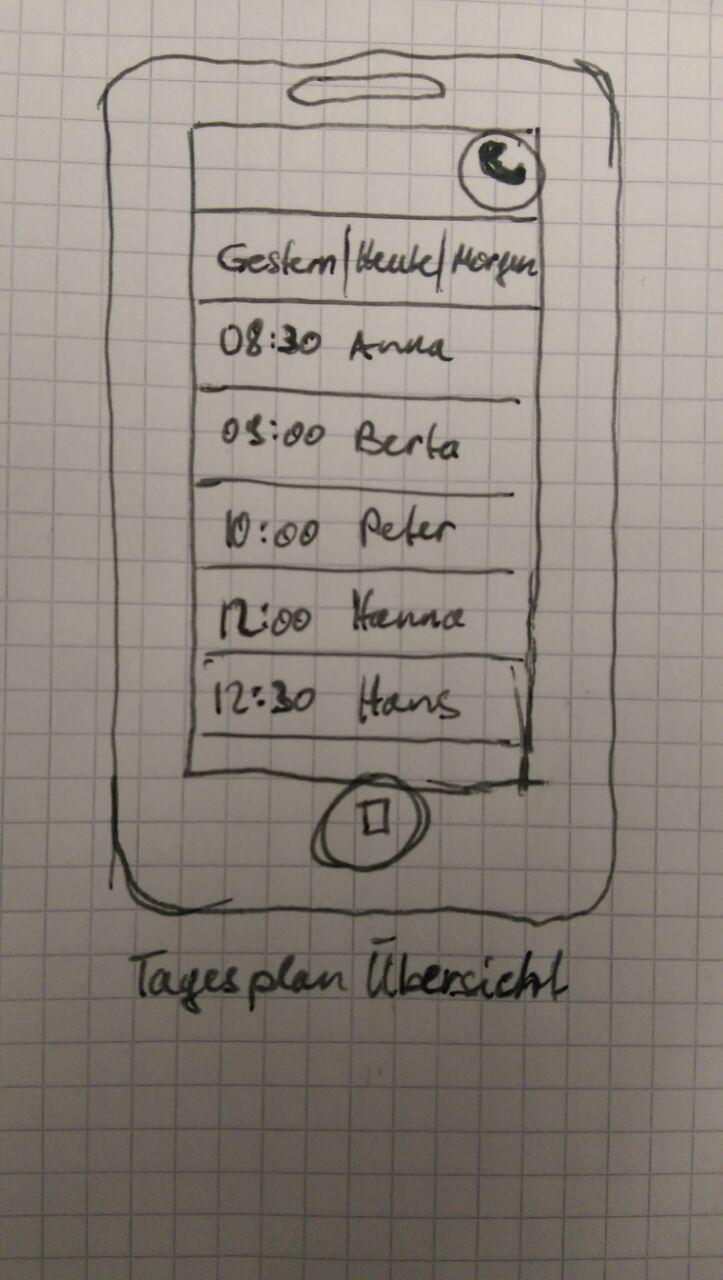 Gestern | Heute | Morgen
08:30 Anna
09:00 Berta
10:00 Peter
12:00 Hanna
12:30 Hans
Tagesplan Übersicht